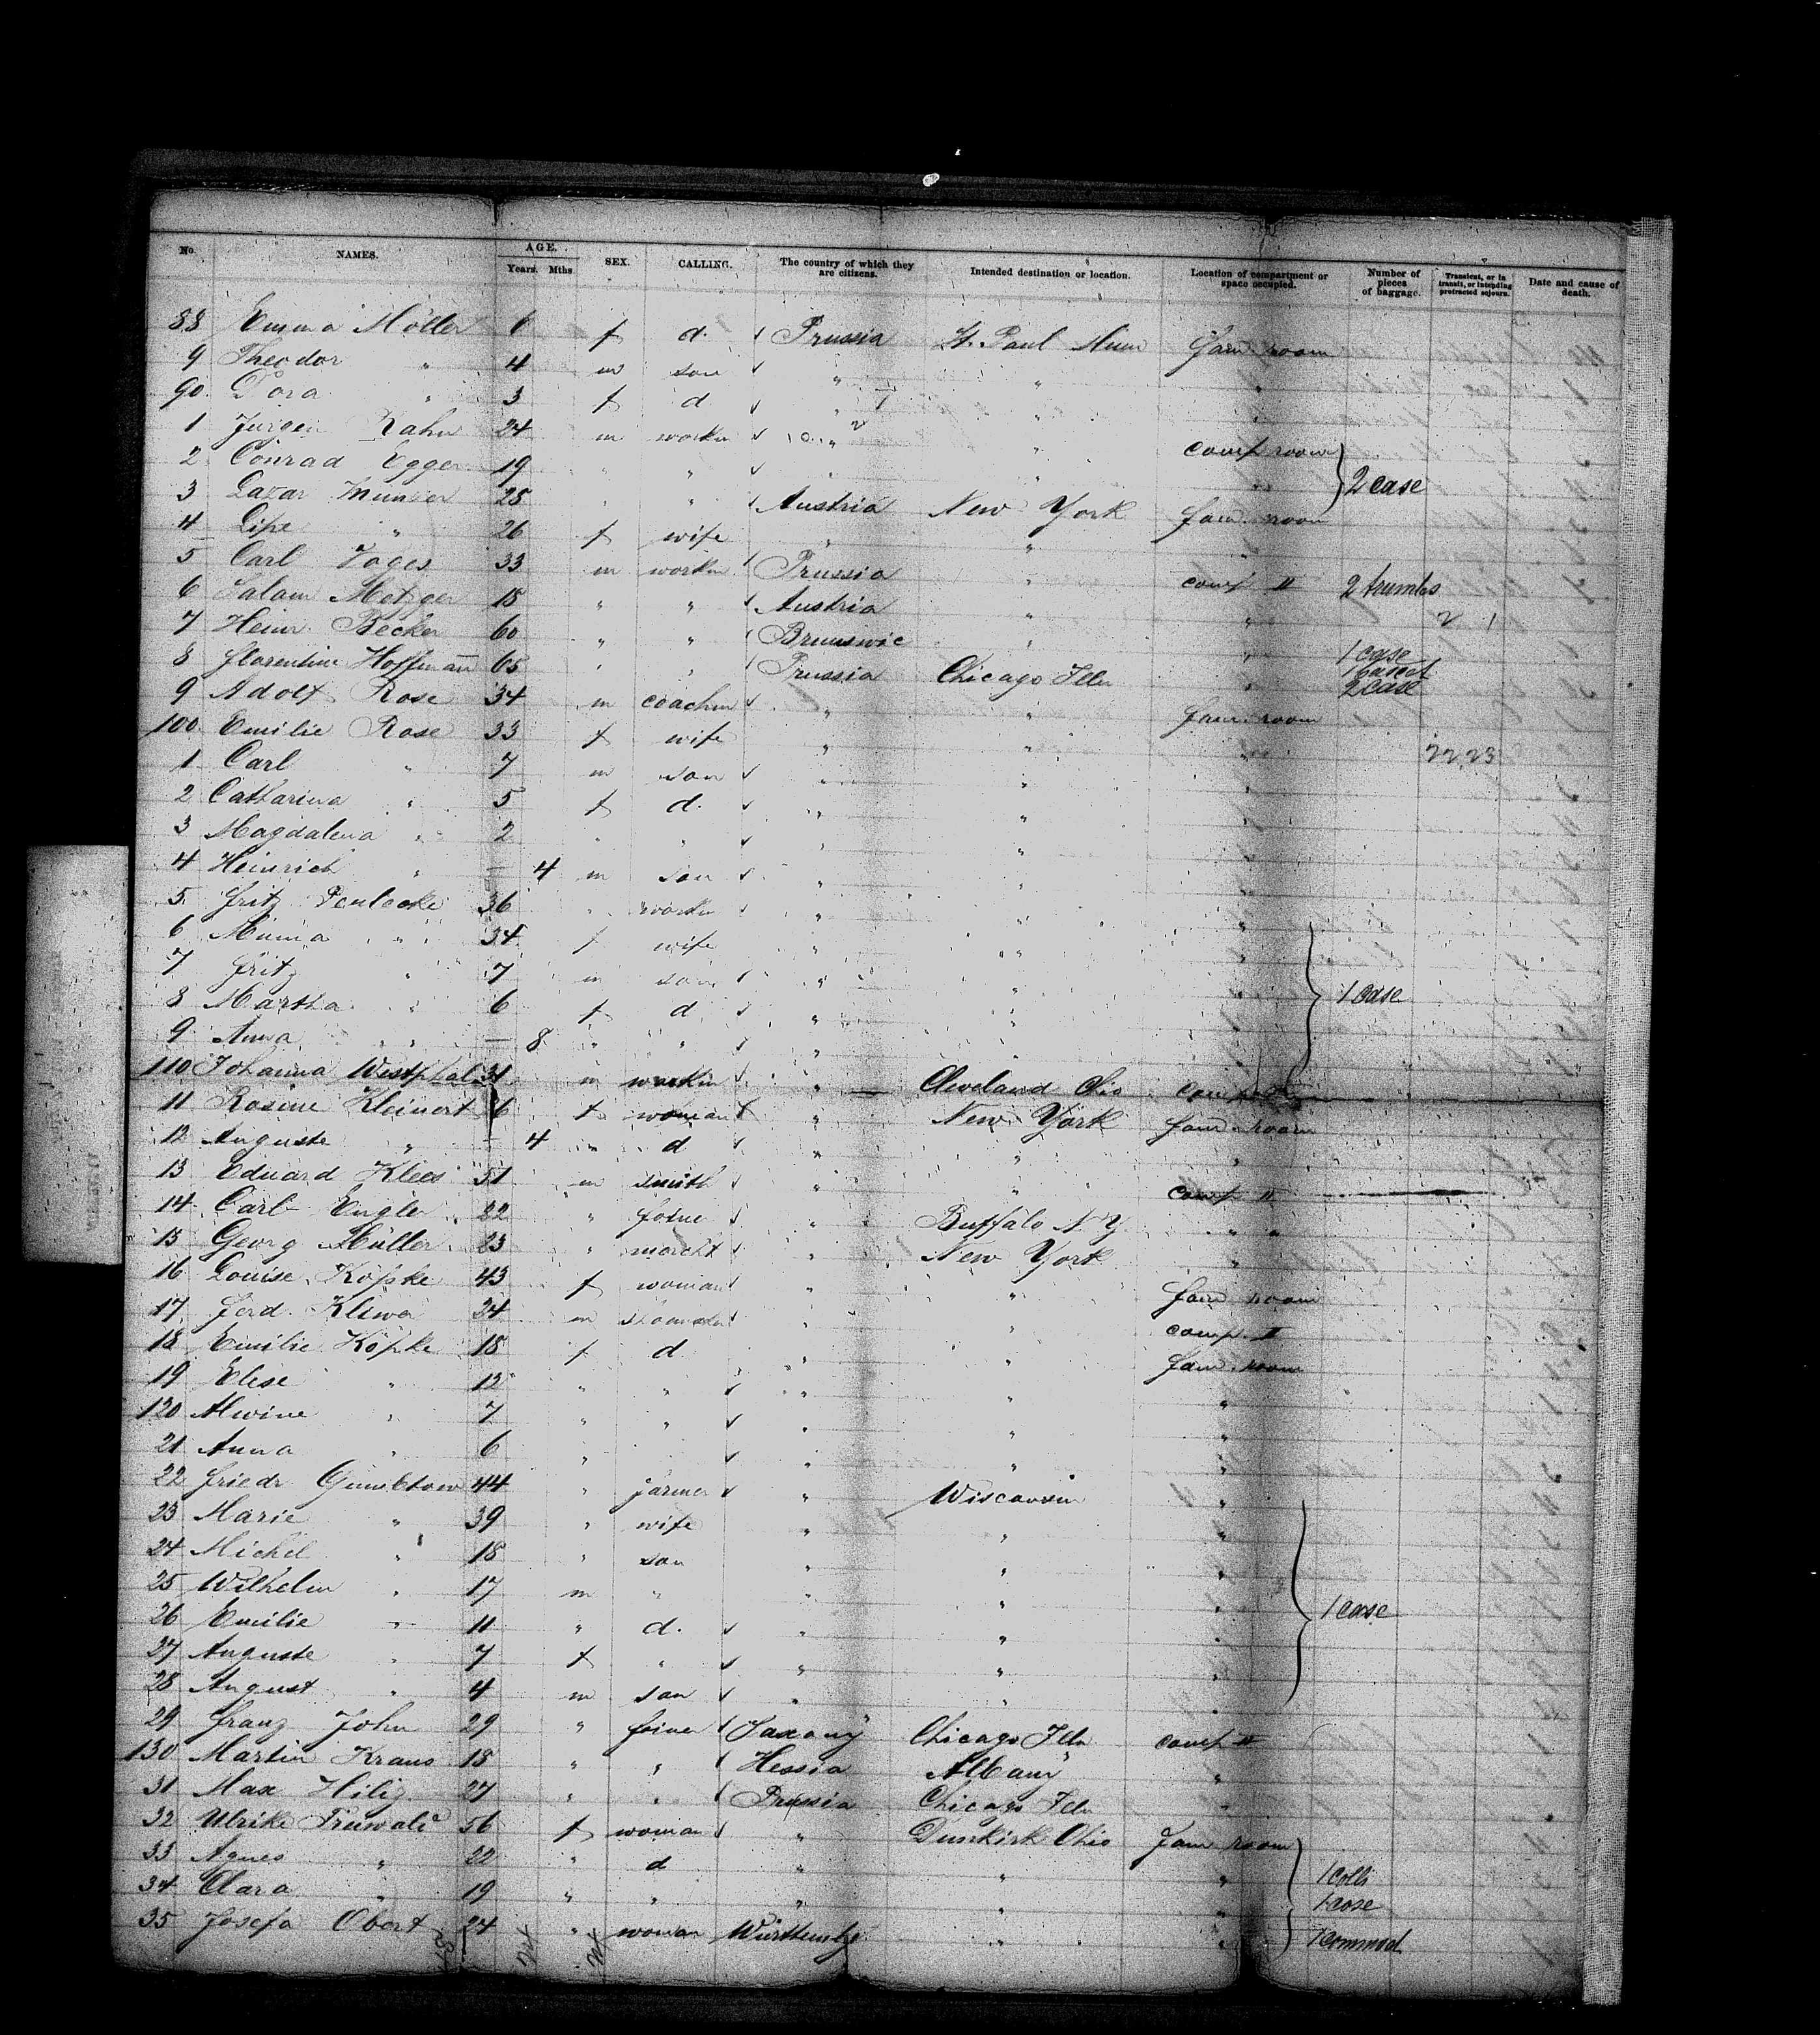 No. NAMES. AGE. Years. Mths. SEX. CALLING. The country of which they are citizens. Intended destination or location. Location of compartment or space occupied. Number of pieces of baggage. Transient, or in transit, or intending protracted sojourn. Date and cause of death.
88 Emma Möller 6 f d. Prussia St. Paul Minn fam. room
9 Theodor " 4 m son " " "
90. Dora " 3 f d " " "
1 Jürgen Rahn 24 m workm " " comp room
2 Conrad Egger 19 " " " " 2 case
3 Lazar Munzer 28 " " Austria New York fam. room
4 Lipe " 26 f wife " " "
5 Carl Voges 33 m workm Prussia " comp II 2 trumbs
6 Salam Metzger 18 " " Austria " "
7 Heinr. Becker 60 " " Brunswic " " 1 case
8 Florentine Hoffmann 65 " " Prussia Chicago Ills " 1 basket
9 Adolf Rose 34 m coachm " " fam. room 2 case
100. Emilie Rose 33 f wife " " "
1 Carl " 7 m son " " "
2 Catharina " 5 f d. " " "
3 Magdalena " 2 " " " " "
4 Heinrich " — 4 m son " " "
5. Fritz 36 " workm " " "
6 Minna " 34 f wife " " "
7 Fritz " 7 m son " " "
8 Martha " 6 f d " " " 1 case
9 Anna " — 8 " " " " "
110 Johanna Westphal 31 m workm " Cleveland Ohio comp
11 Rosine Kleinert 6 f woman " New York fam. room
12 Auguste " — 4 " d " " "
13 Eduard Klees 51 m smith " " comp II
14 Carl Engler 22 " joine " Buffalo N.Y. " "
15 Georg Müller 23 " marcht " New York "
16 Louise Köpke 43 f woman " " fam room
17 Ferd. Kliwa 24 m " " comp. II
18 Emilie Köpke 18 f d " " fam. room
19 Elise " 12 " " " " "
120 Alwine " 7 " " " " "
21 Anna " 6 " " " " "
22 Friedr. 44 " farmer " Wisconsin "
23 Marie " 39 " wife " " "
24 Michel " 18 " son " " "
25 Wilhelm " 17 m " " " "
26 Emilie " 11 " d. " " " 1 case
27 Auguste " 7 f " " " "
28 August " 4 m son " " "
29 Franz John 29 " joiner Saxony Chicago Ills comp II
130 Martin Kraus 18 " " Hessia Albany "
31 Max Hilig 27 " " Prussia Chicago Ills "
32 Ulrike 56 f woman " Dunkirk Ohio fam room
33 Agnes " 22 " d " " " 1 colli
34 Clara " 19 " " " " " 1 case
35 Josefa Obert 24 " woman Württembg. " " 1 commod